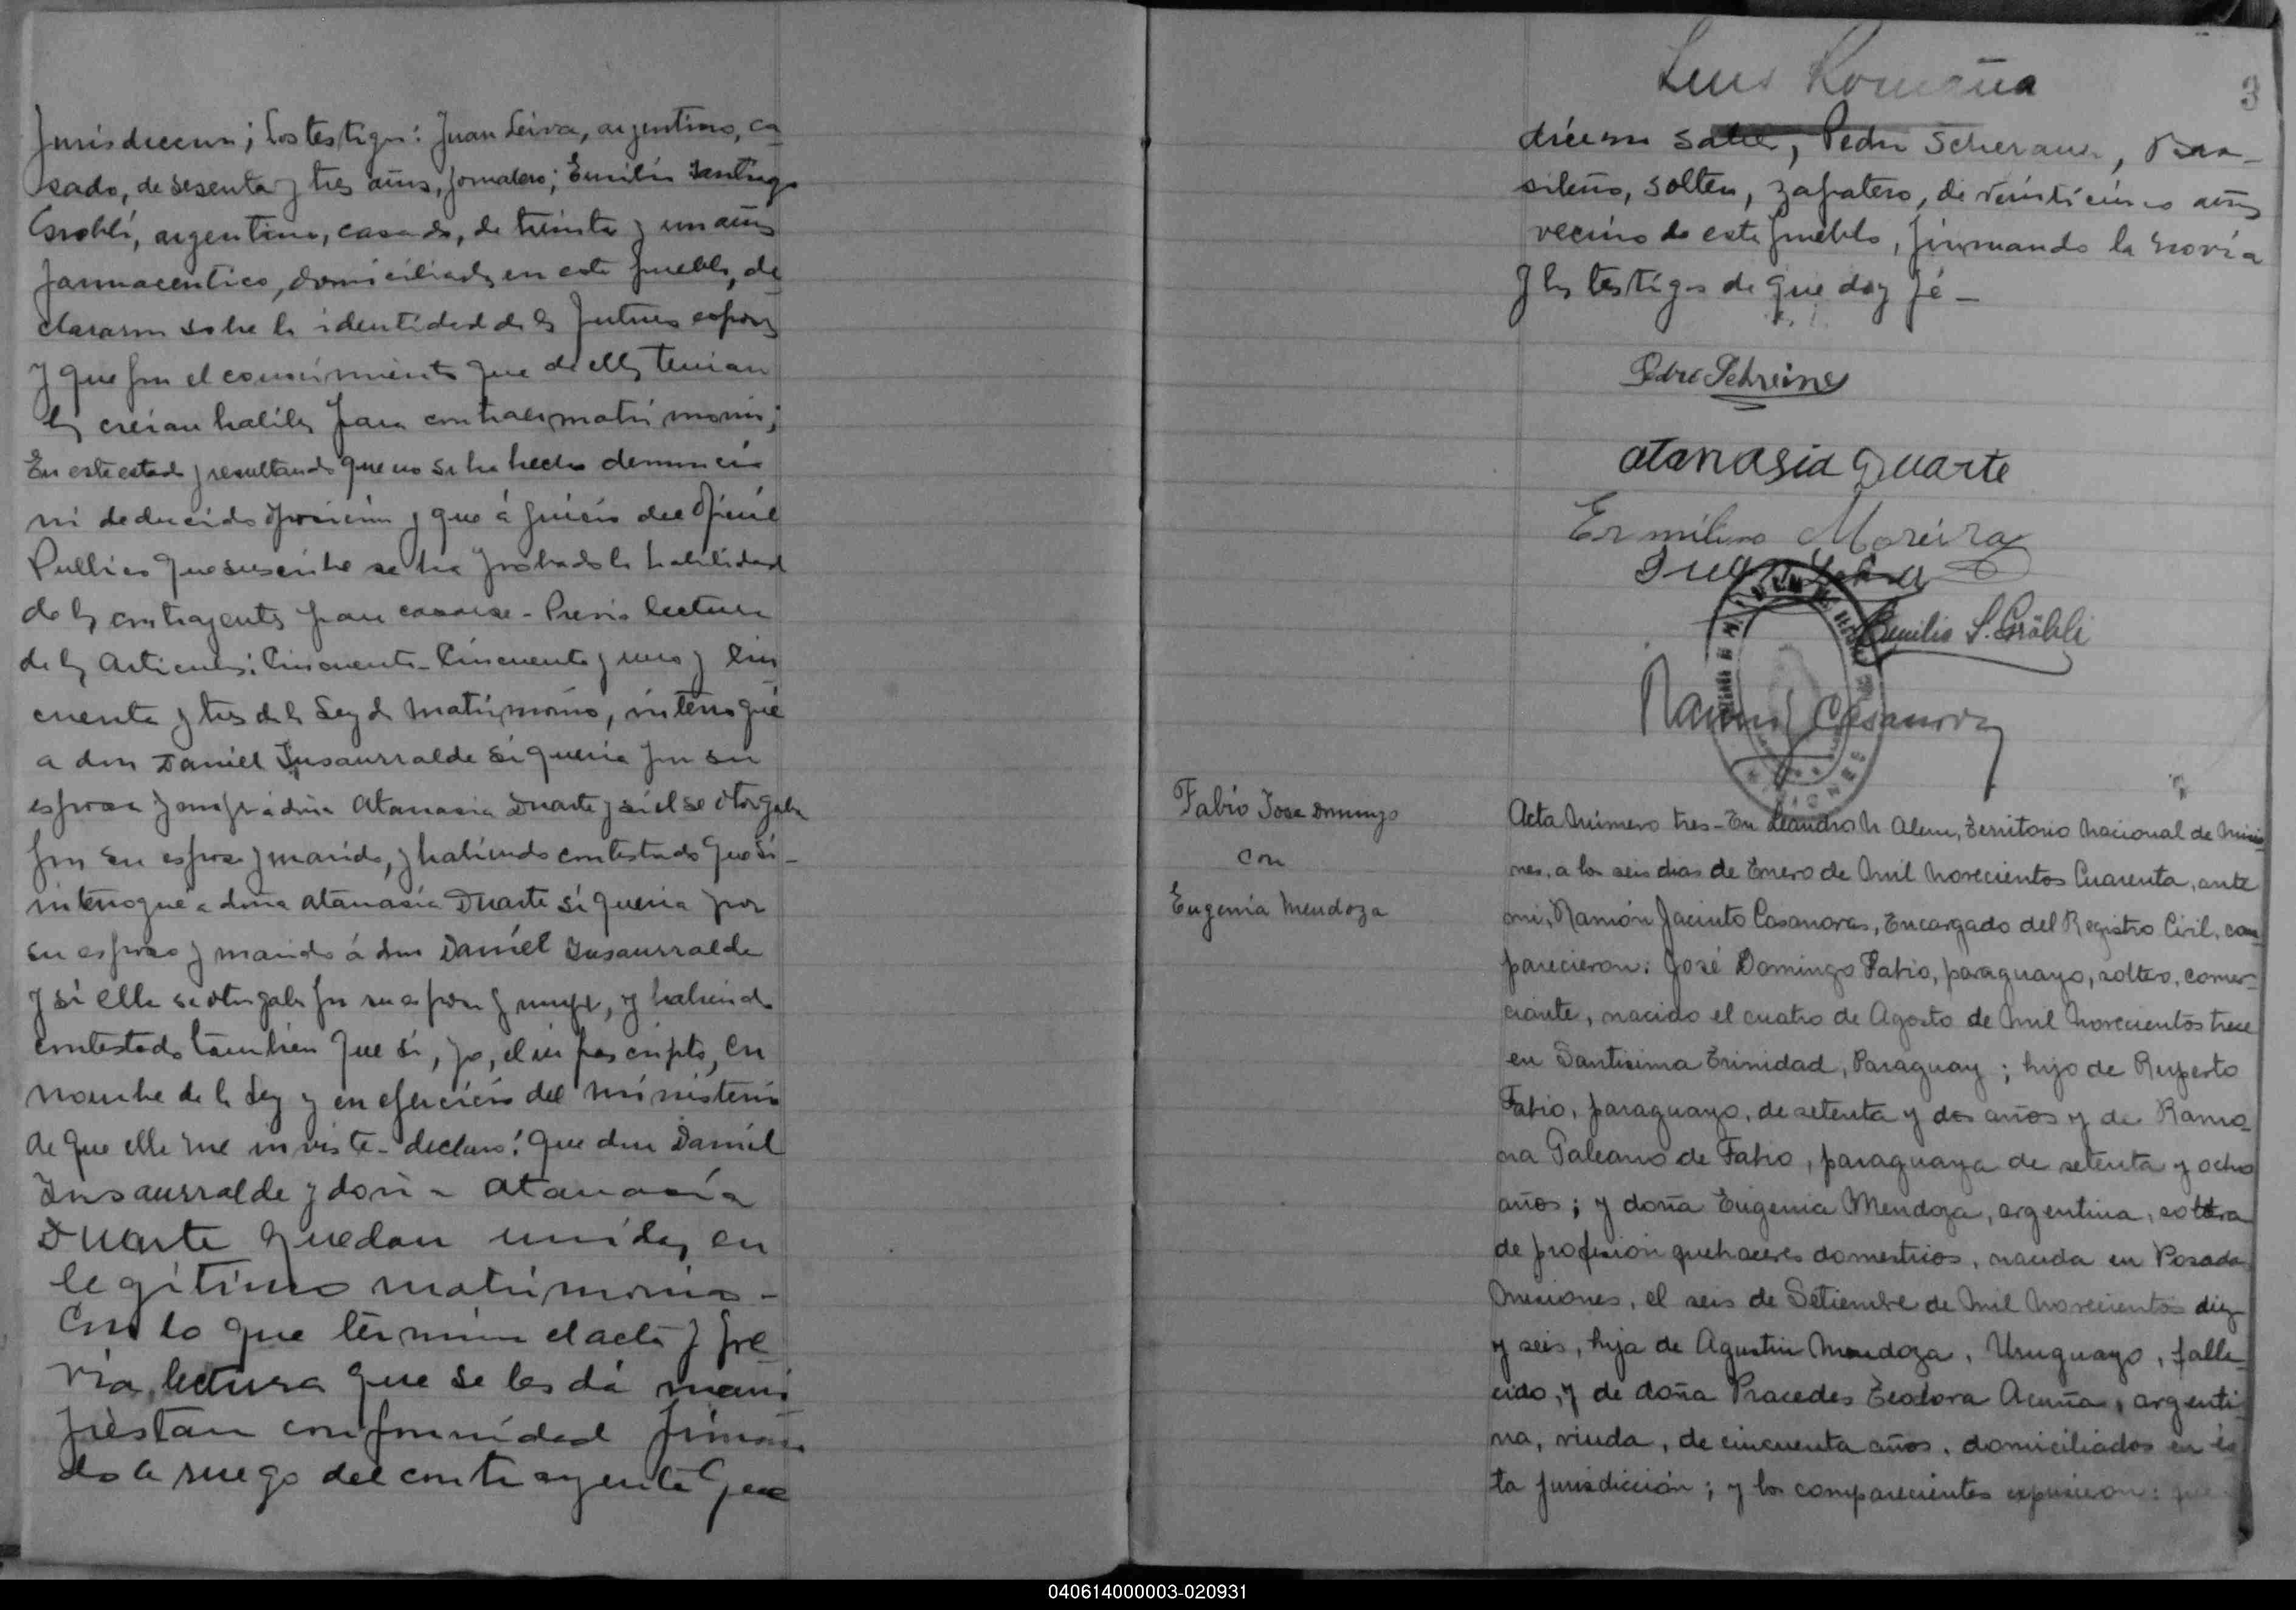 Jurisdiccion; los testigos: Juan Leiva, argentino, ca
sado, de sesenta y tres años, jornalero; Emilio Santiago
Grobli, argentino, casado, de treinta y un años
farmaceutico, domiciliados en este pueblo, de
clararon sobre la identidad de los futuros esposos
y que por el conocimiento que de ellos tenian
los creian habiles para contraer matrimonio;
En este estado y resultando que no se ha hecho denuncia
ni deducido oposicion y que á juicio del Oficial
Publico que suscribe se ha probado la habilidad
de los contrayentes para casarse - Previa lectura
de los articulos: Cincuenta - Cincuenta y uno y cin
cuenta y tres de la Ley de Matrimonio, interrogué
a don Daniel Insaurralde si queria por su
esposa y mujer a doña Atanasia Duarte y si el se otorgaba
por su esposo y marido, y habiendo contestado que si -
interrogué a doña Atanasia Duarte si queria por
su esposo y marido á don Daniel Insaurralde
y si ella se otorgaba por su esposa y mujer, y habiendo
contestado tambien que si, yo, el infrascripto, en
nombre de la Ley y en ejercicio del ministerio
de que ella me inviste - declaro: que don Daniel
Insaurralde y doña Atanasia
Duarte quedan unidos en
legitimo matrimonio -
Con lo que termina el acta y pre
via lectura que se les dá mani
fiestan conformidad firman
do a ruego del contrayente que
Luis Romaña
3
Pedro Bra-
sileño, soltero, zapatero, de veinticinco años
vecino de este pueblo, firmando la novia
y los testigos de que doy fé -
Pedro Schreiner
Atanasia Duarte
Ermilino Moreira
Juan Leiva
Emilio S. Gröbli
Ramón J Casanovas
Fabio Jose Domingo
con
Eugenia Mendoza
Acta Número tres - En Leandro N Alem, Territorio Nacional de Misio
nes, a los seis dias de Enero de Mil Novecientos Cuarenta, ante
mi, Ramón Jacinto Casanovas, Encargado del Registro Civil, com
parecieron: José Domingo Fabio, paraguayo, soltero, comer-
ciante, nacido el cuatro de Agosto de Mil Novecientos trece
en Santisima Trinidad, Paraguay; hijo de Ruperto
Fabio, paraguayo, de setenta y dos años y de Ramo
na Galeano de Fabio, paraguaya de setenta y ocho
años; y doña Eugenia Mendoza, argentina, soltera
de profesión quehaceres domesticos, nacida en Posadas
Misiones, el seis de Setiembre de Mil Novecientos diez
y seis, hija de Agustin Mendoza, Uruguayo, falle
cido, y de doña Pracedes Teodora Acuña, argenti
na, viuda, de cincuenta años, domiciliados en és
ta jurisdicción; y los comparecientes expusieron: que
040614000003-020931